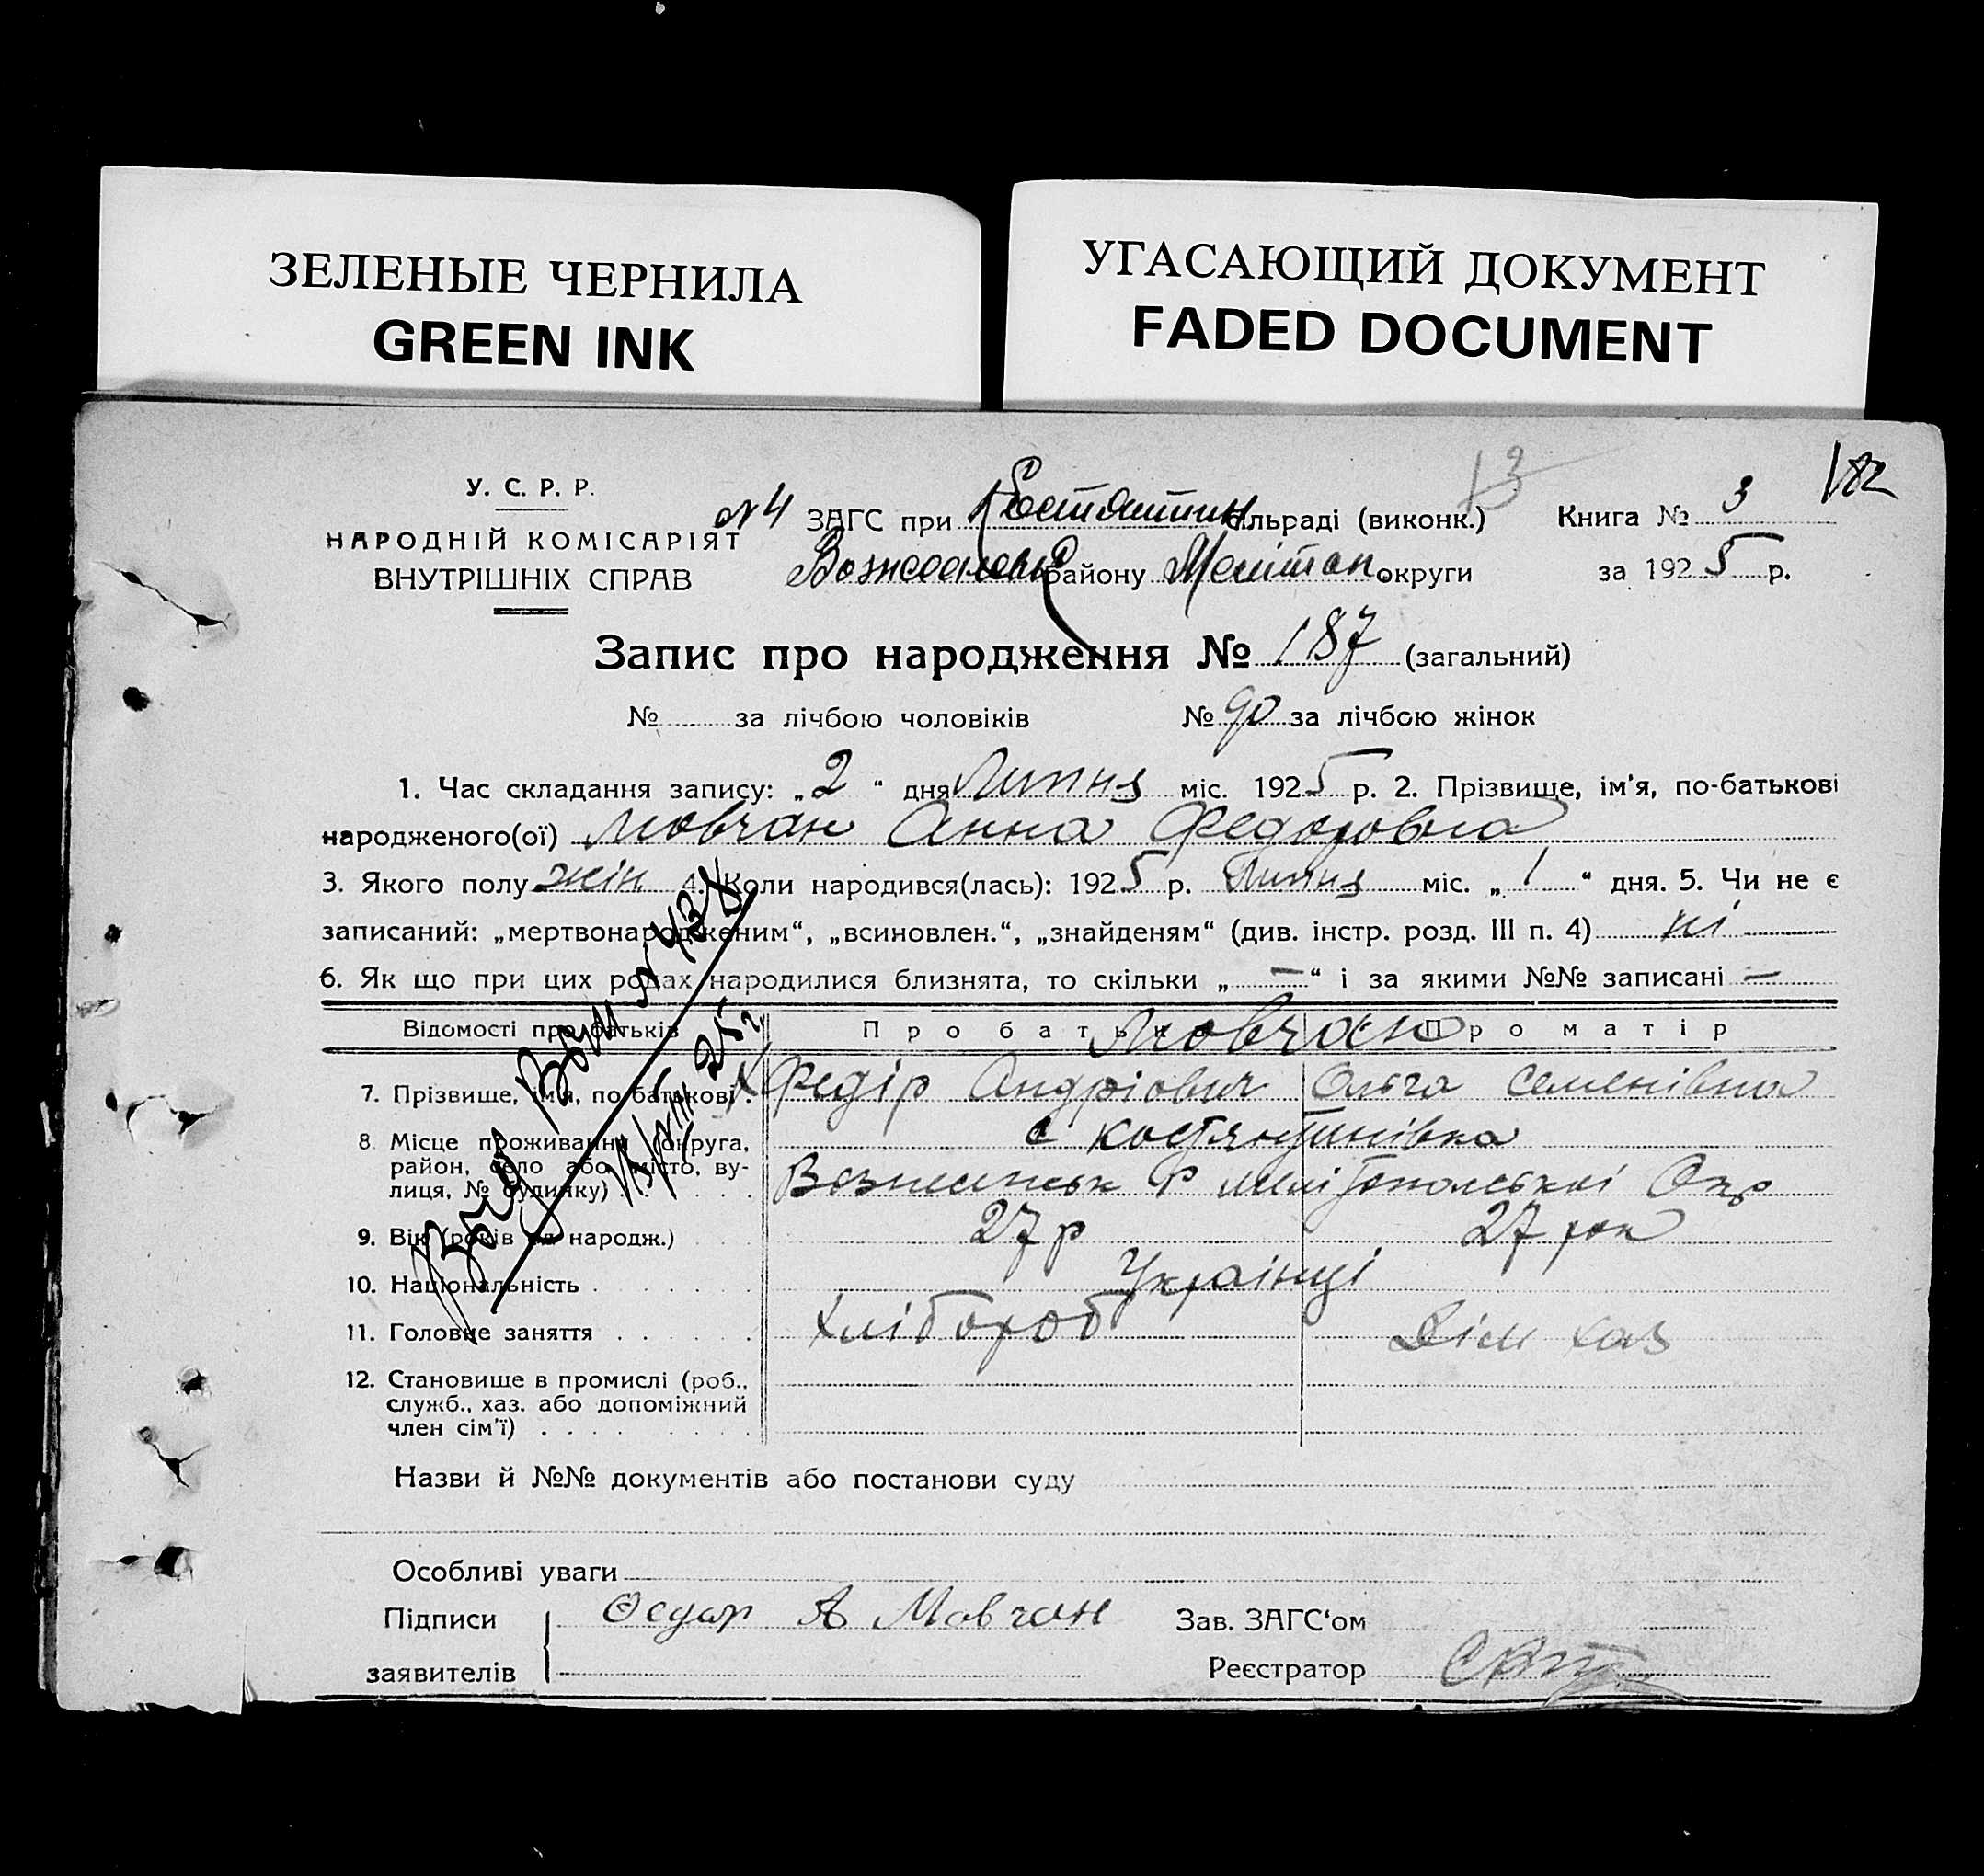 ЗЕЛЕНЫЕ ЧЕРНИЛА
GREEN INK
УГАСАЮЩИЙ ДОКУМЕНТ
FADED DOCUMENT
13
182
У. С. Р. Р.
НАРОДНІЙ КОМІСАРІЯТ
ВНУТРІШНІХ СПРАВ
№ 4 ЗАГС при Костянтин сільраді (виконк.) Книга № 3
району Мелітоп. округи за 1925 р.
Запис про народження № 187 (загальний)
№ за лічбою чоловіків № 90 за лічбою жінок
1. Час складання запису: „2“ дня Липня міс. 1925 р. 2. Прізвище, ім'я, по-батькові
народженого(ої) Мовчан Анна Федоровна
3. Якого полу жін 4. Коли народився(лась): 1925 р. Липня міс. „1“ дня. 5. Чи не є
записаний: „мертвонародженим“, „всиновлен.“, „знайденям“ (див. інстр. розд. III п. 4) ні
6. Як що при цих родах народилися близнята, то скільки „—“ і за якими №№ записані —
Відомості про батьків Про батька Мовчан Про матір
7. Прізвище, ім'я, по батькові. Федір Андріович Ольга Семенівна
8 Місце проживання (округа, с Костянтинівка
район, село або місто, ву-
лиця, № будинку) Р мелітопольскоі Окр
9. Вік (років від народж.) 27 р 27 рок
10. Національність Українці
11. Головне заняття Хлібороб Дім хаз
12. Становище в промислі (роб.,
служб., хаз. або допоміжний
член сім'ї)
Назви й №№ документів або постанови суду
Особливі уваги
Підписи Федор А Мовчан Зав. ЗАГС'ом
заявителів Реєстратор